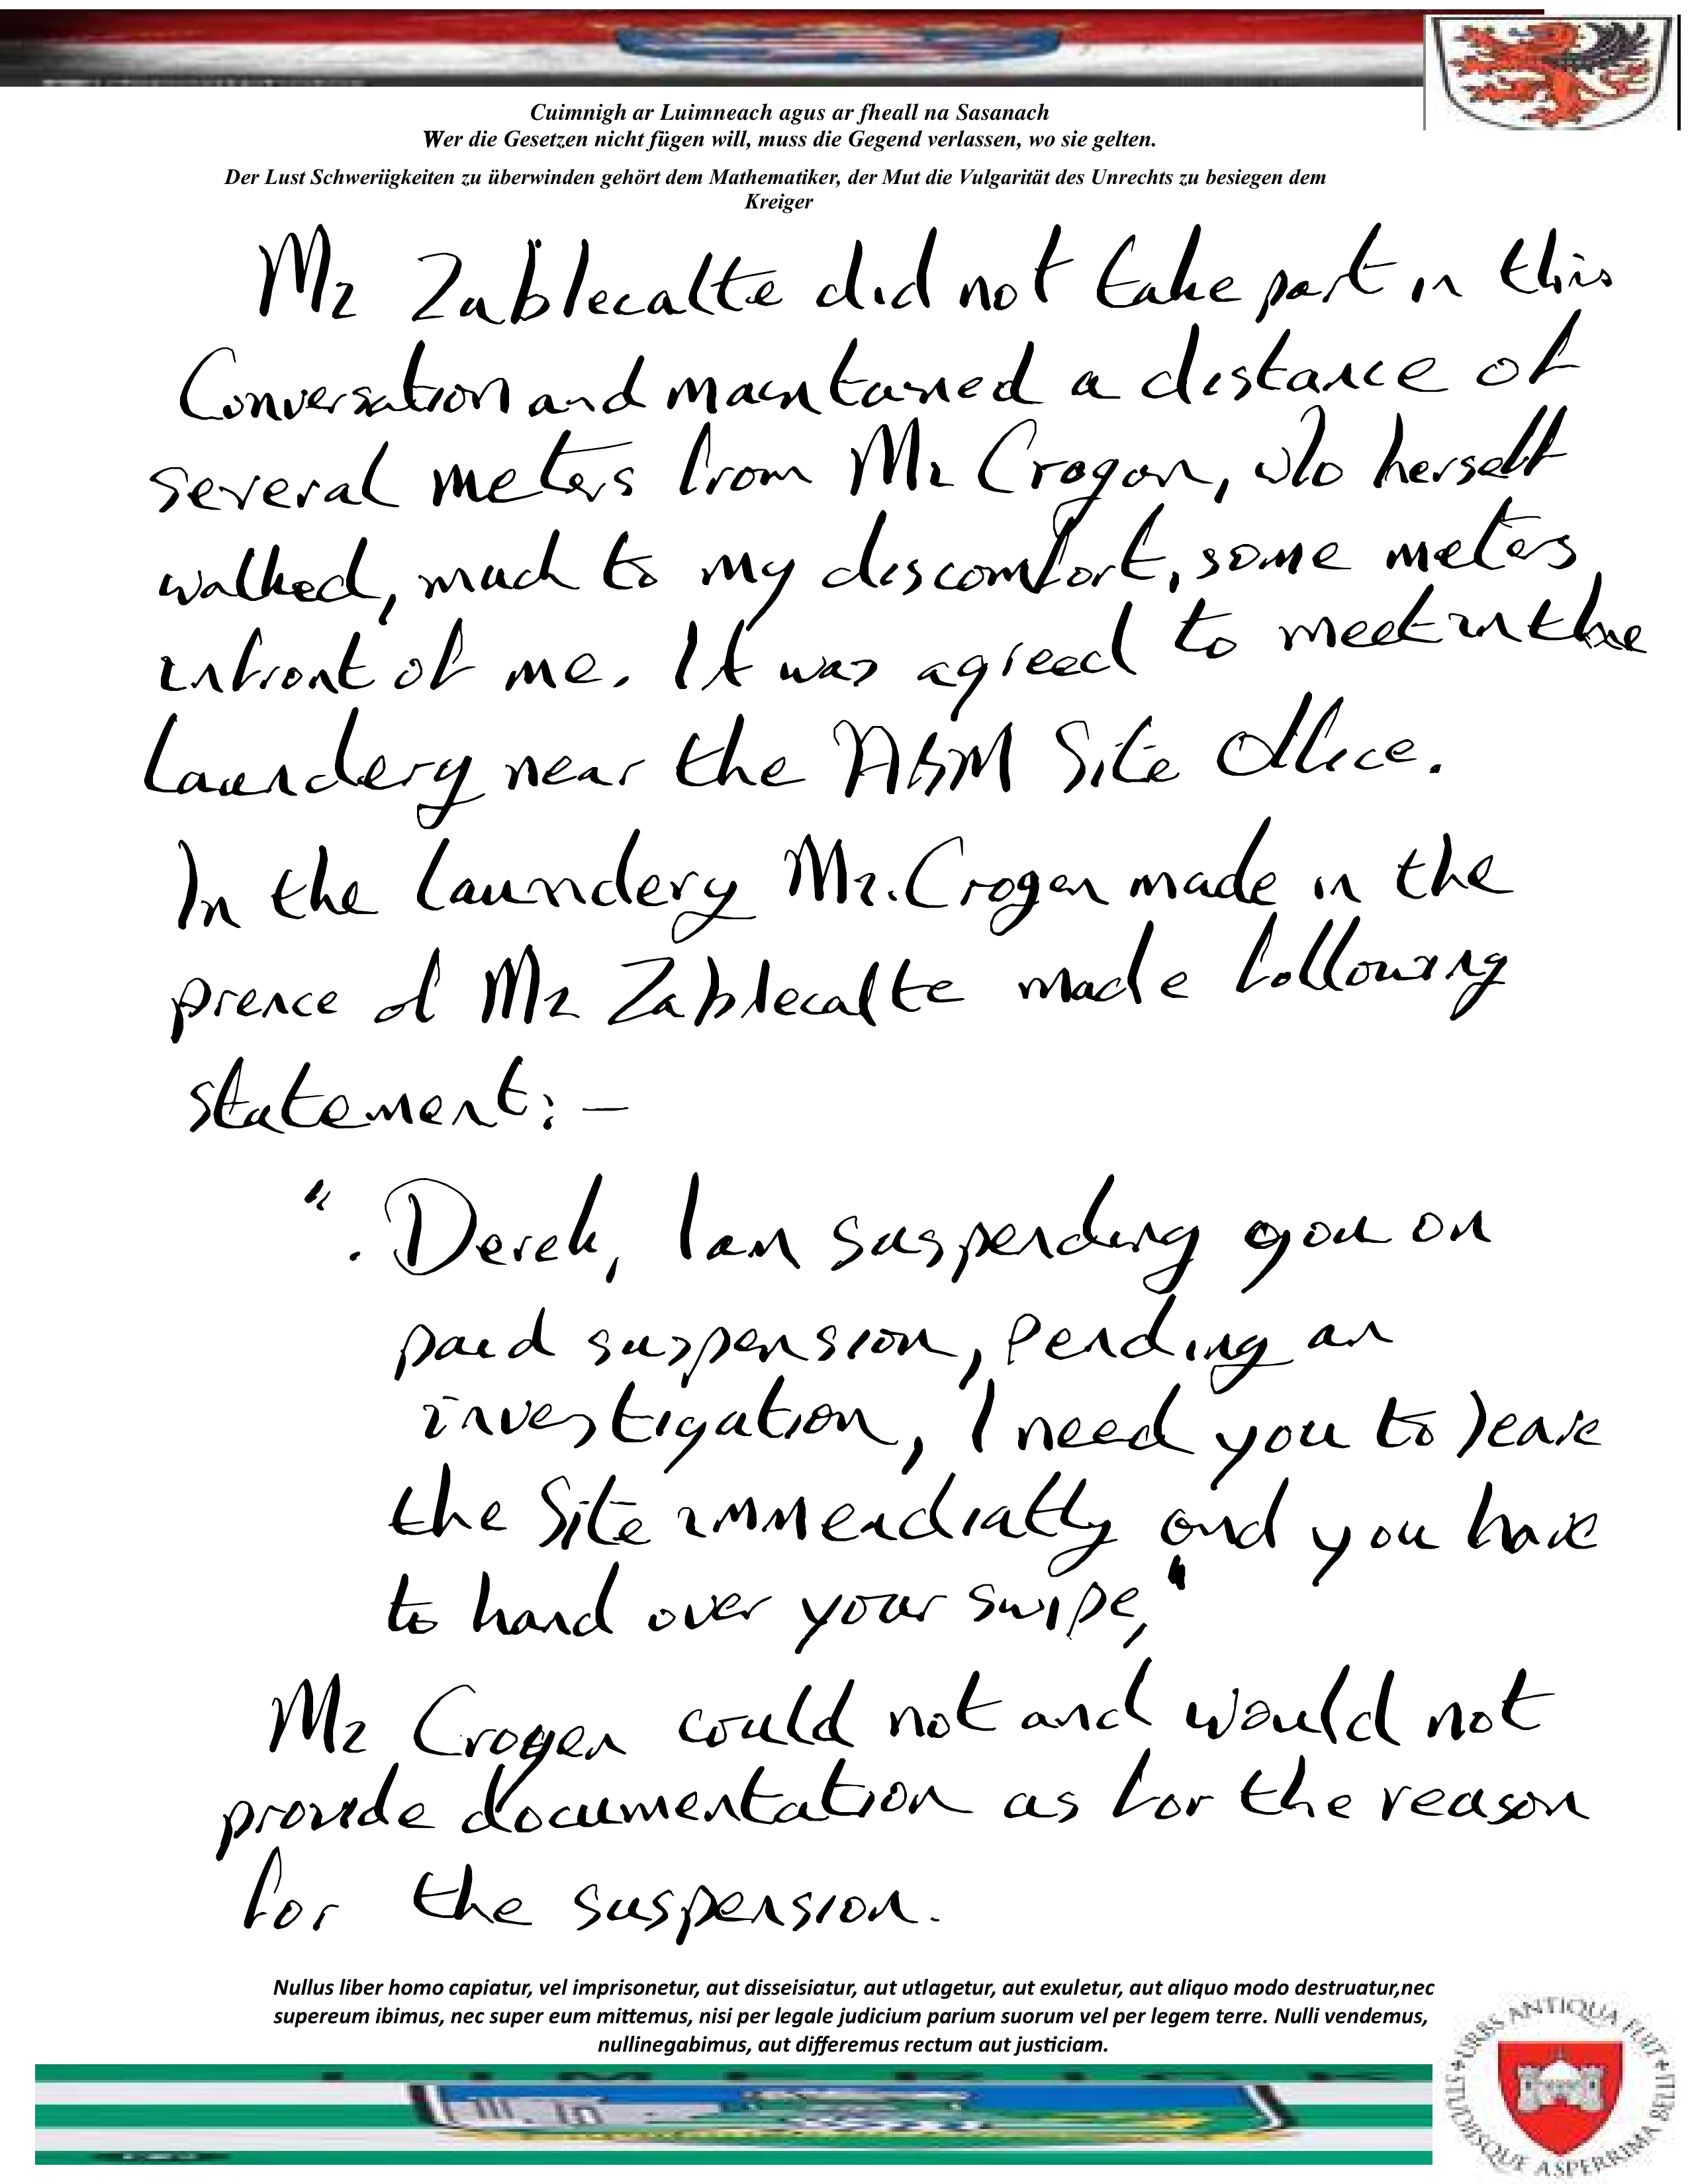 Cuimnigh ar Luimneach agus ar fheall na Sasanach
Wer die Gesetzen nicht fügen will, muss die Gegend verlassen, wo sie gelten.
Der Lust Schweriigkeiten zu überwinden gehört dem Mathematiker, der Mut die Vulgarität des Unrechts zu besiegen dem
Kreiger
Mz Zablecalte did not take part in this
Conversation and maintained a distance of
several meters from Mz Crogan, who herself
walked, much to my discomfort, some meters
infront of me. It was agreed to meet in the
laundery near the ABM Site Office.
In the laundery Mz. Crogen made in the
prence of Mz Zablecalte made following
statement:-
". Derek, I am suspending you on
paid suspension, pending an
investigation, I need you to leave
the Site immendiatly and you have
to hand over your swipe,"
Mz Crogen could not and would not
provide documentation as for the reason
for the suspension.
Nullus liber homo capiatur, vel imprisonetur, aut disseisiatur, aut utlagetur, aut exuletur, aut aliquo modo destruatur,nec
supereum ibimus, nec super eum mittemus, nisi per legale judicium parium suorum vel per legem terre. Nulli vendemus,
nullinegabimus, aut differemus rectum aut justiciam.
LIMERICK
URBS ANTIQUA FUIT STUDIISQUE ASPERRIMA BELLI